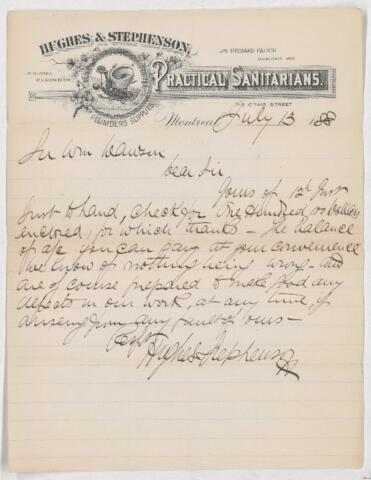 HUGHES & STEPHENSON,
PRACTICAL SANITARIANS.
PLUMBERS SUPPLIES
CRAIG STREET
Montreal July 13 188
Sir Wm Dawson
Dear Sir
Yours of 12th Inst
Just to hand, check for One Hundred dollars
enclosed, for which thanks – The balance
of a/c you can pay at your convenience
We know of nothing being wrong – and
are of course prepared to make good any
defects in our work, at any time, if
arising from any fault of ours –
Hughes & Stephenson